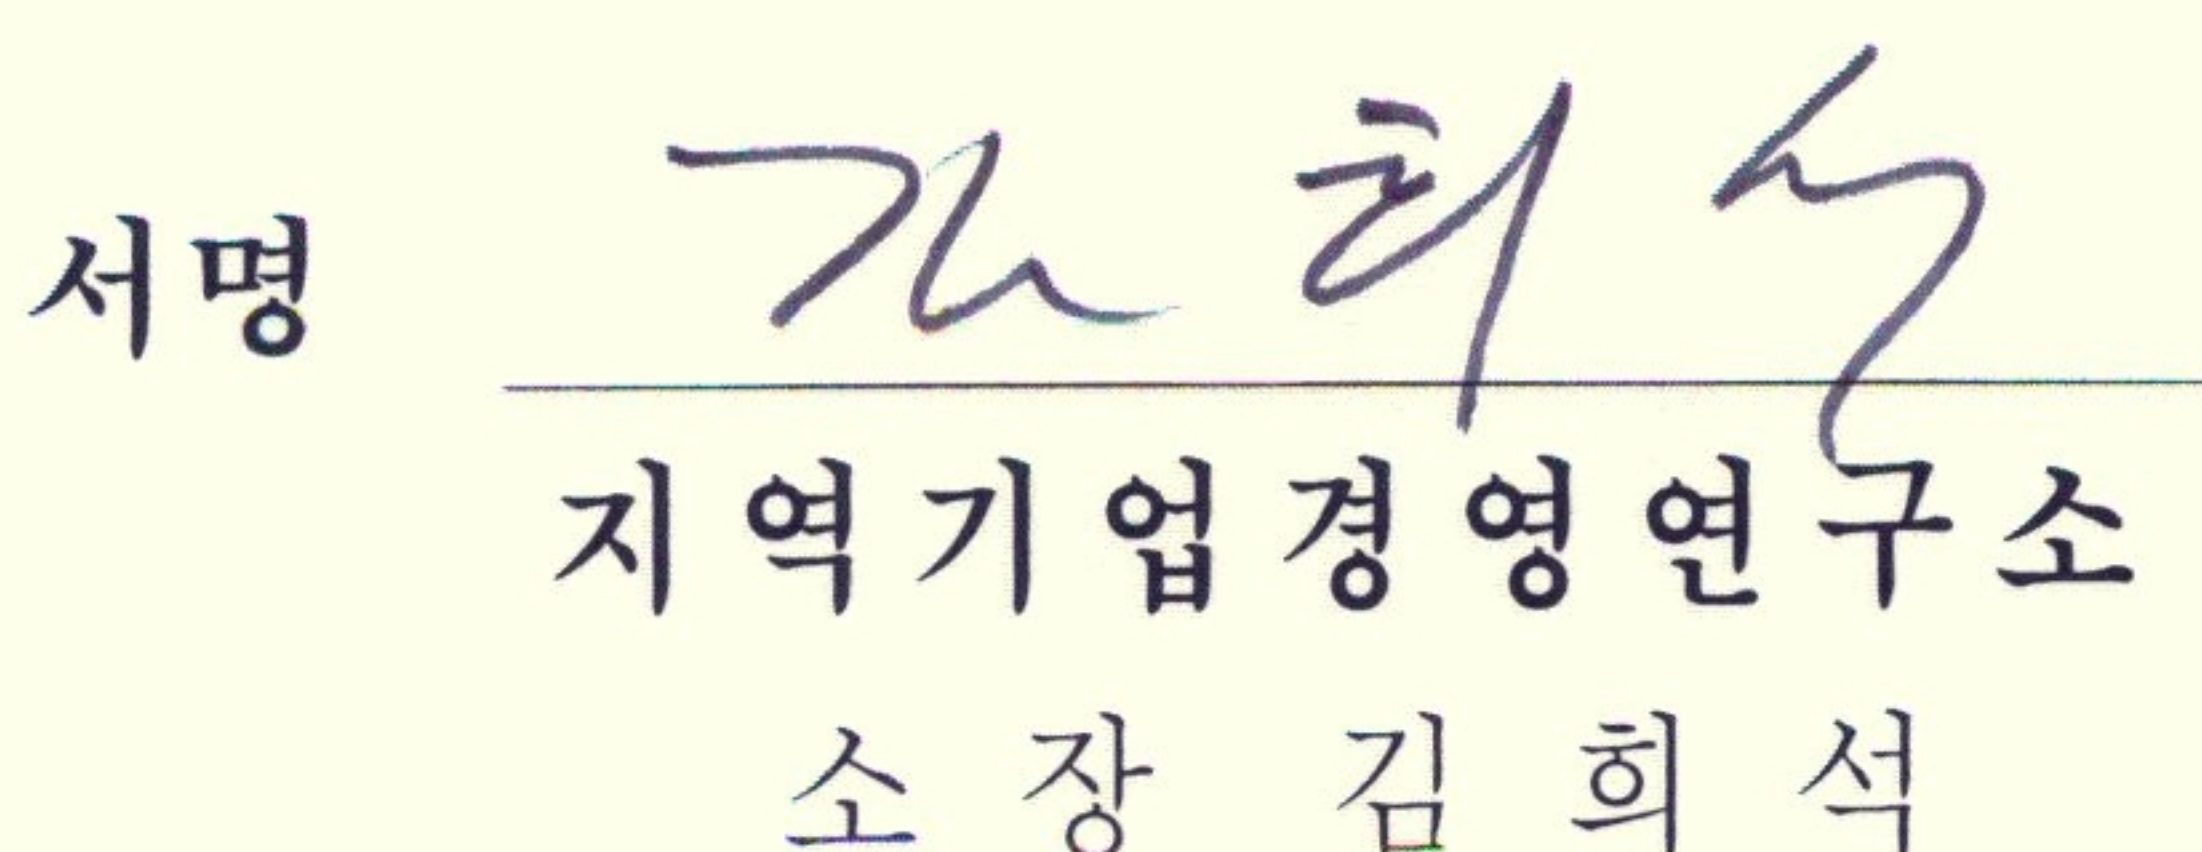 서명 김희석
지역기업경영연구소
소장 김희석